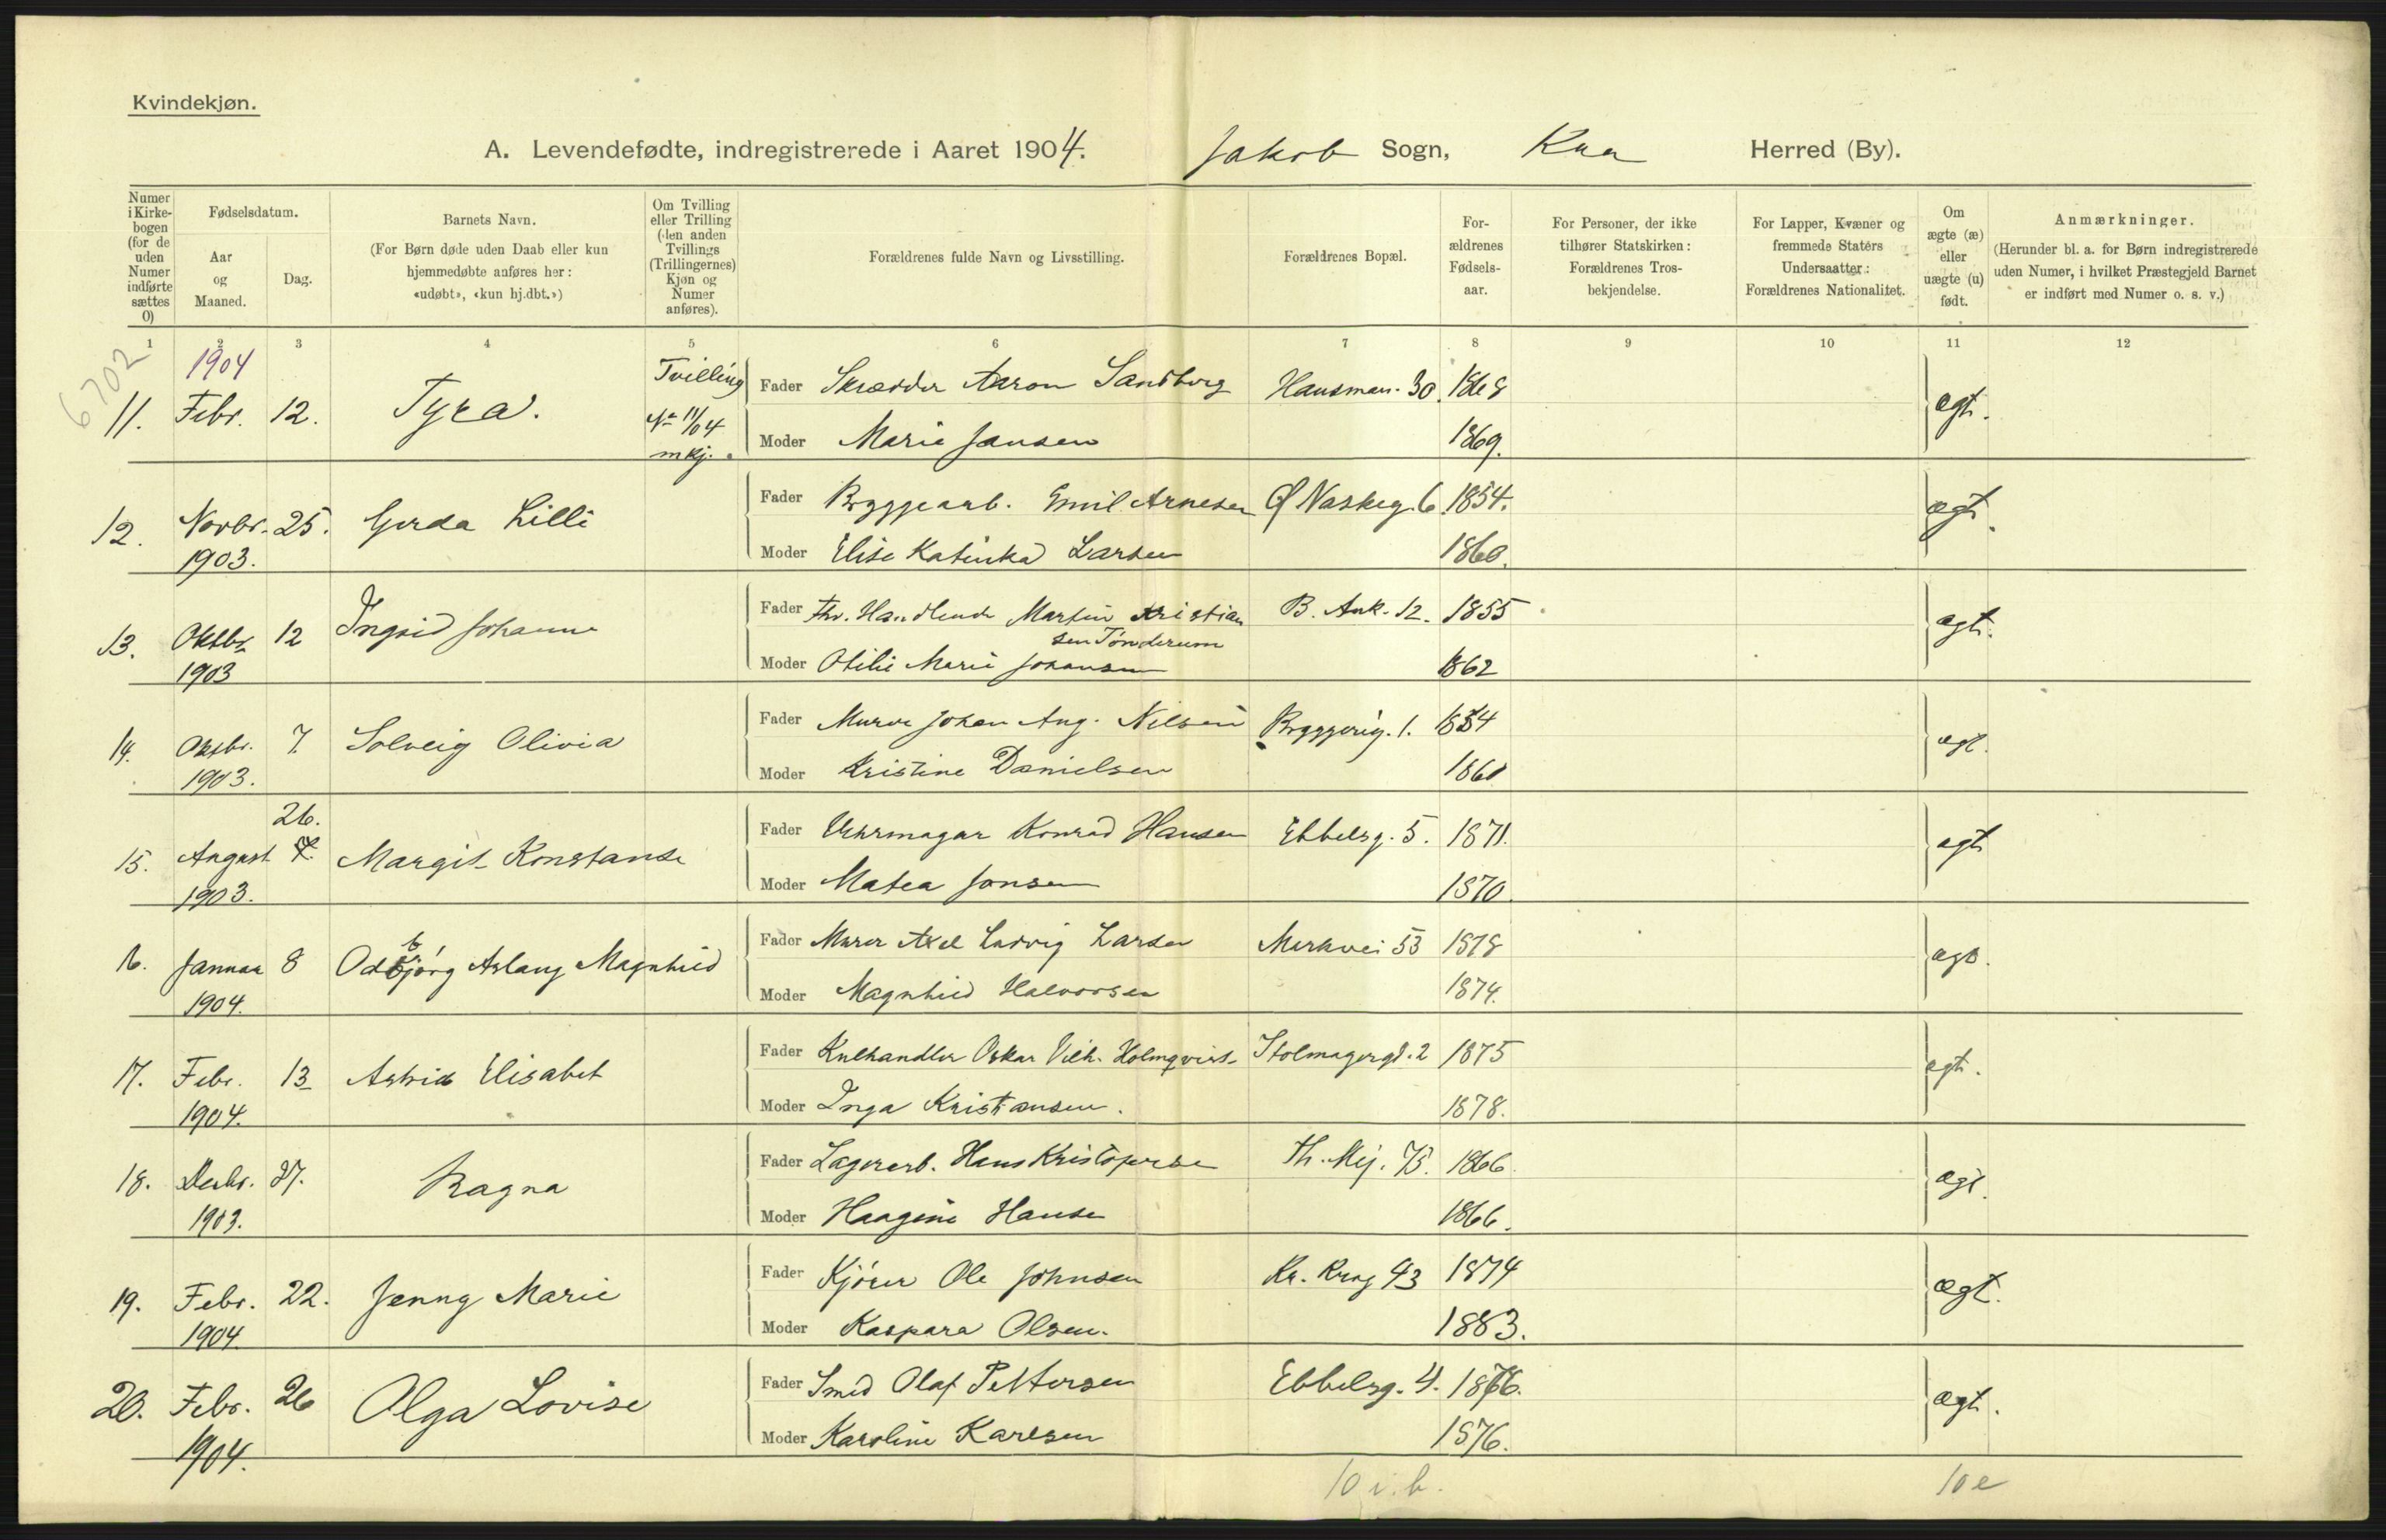 Kvindekjøn.
A. Levendefødte, indregistrerede i Aaret 1904. Jakob Sogn, Kra Herred (By).
Numer i Kirke-bogen (for de uden Numer indførte sættes 0)
Fødselsdatum.
Aar og Maaned.
Dag.
Barnets Navn.
(For Børn døde uden Daab eller kun hjemmedøbte anføres her: «udøbt», «kun hj.dbt.»)
Om Tvilling eller Trilling (den anden Tvillings (Trillingernes) Kjøn og Numer anføres).
Forældrenes fulde Navn og Livsstilling.
Forældrenes Bopæl.
For-ældrenes Fødsels-aar.
For Personer, der ikke tilhører Statskirken: Forældrenes Tros-bekjendelse.
For Lapper, Kvæner og fremmede Staters Undersaatter: Forældrenes Nationalitet.
Om ægte (æ) eller uægte (u) født.
Anmærkninger.
(Herunder bl. a. for Børn indregistrerede uden Numer, i hvilket Præstegjeld Barnet er indført med Numer o. s. v.)
1 2 3 4 5 6 7 8 9 10 11 12
6702
1904
11. Febr. 12. Tyra. Tvilling Fader Skrædder Aaron Sandberg Hausman. 30. 1868 ægt.
No 11/04 mkj. Moder Marie Jansen 1869.
12. Novbr. 25. Gerda Lilli Fader Bryggearb. Emil Arnesen Ø Naskeg. 6. 1854. ægt.
1903. Moder Elise Katinka Larsen 1860.
13. Oktbr 12 Ingrid Johanne Fader Fhv. Handlende Martin Kristian B. Ank. 12. 1855 ægt.
sen Tönderum
1903 Moder Otilie Marie Johansen 1862
14. Oktbr. 7. Solveig Olivia Fader Murer Johan Aug. Nilsen Bryggerig. 1. 1854 ægt.
1903. Moder Kristine Danielsen 1861
26.
15. August 7. Margit Konstanse Fader Uhrmager Konrad Hansen Ebbelsg. 5. 1871. ægt
1903. Moder Matea Jonsen 1870.
16. Januar 8 Odbjörg Aslaug Magnhild Fader Murer Axel Ludvig Larsen Markvei 53 1878 ægt.
1904. Moder Magnhild Halvorsen 1874.
17. Febr. 13 Astrid Elisabet Fader Kulhandler Oskar Vilh. Holmqvist Stolmagergd. 2 1875 ægt.
1904. Moder Inga Kristiansen. 1878.
18. Desbr. 27. Ragna Fader Lagerarb. Hans Kristofersen Th. Mej. 75. 1866. ægt.
1903. Moder Haagine Hansen 1866.
19. Febr. 22. Jenny Marie Fader Kjörer Ole Johnsen Kr. Krog 43 1874 ægt.
1904. Moder Kaspara Olsen. 1883.
20. Febr. 26 Olga Lovise Fader Smed Olaf Pettersen Ebbelsg. 4. 1876. ægt.
1904. Moder Karoline Karlsen 1876.
10 i. b. 10 e